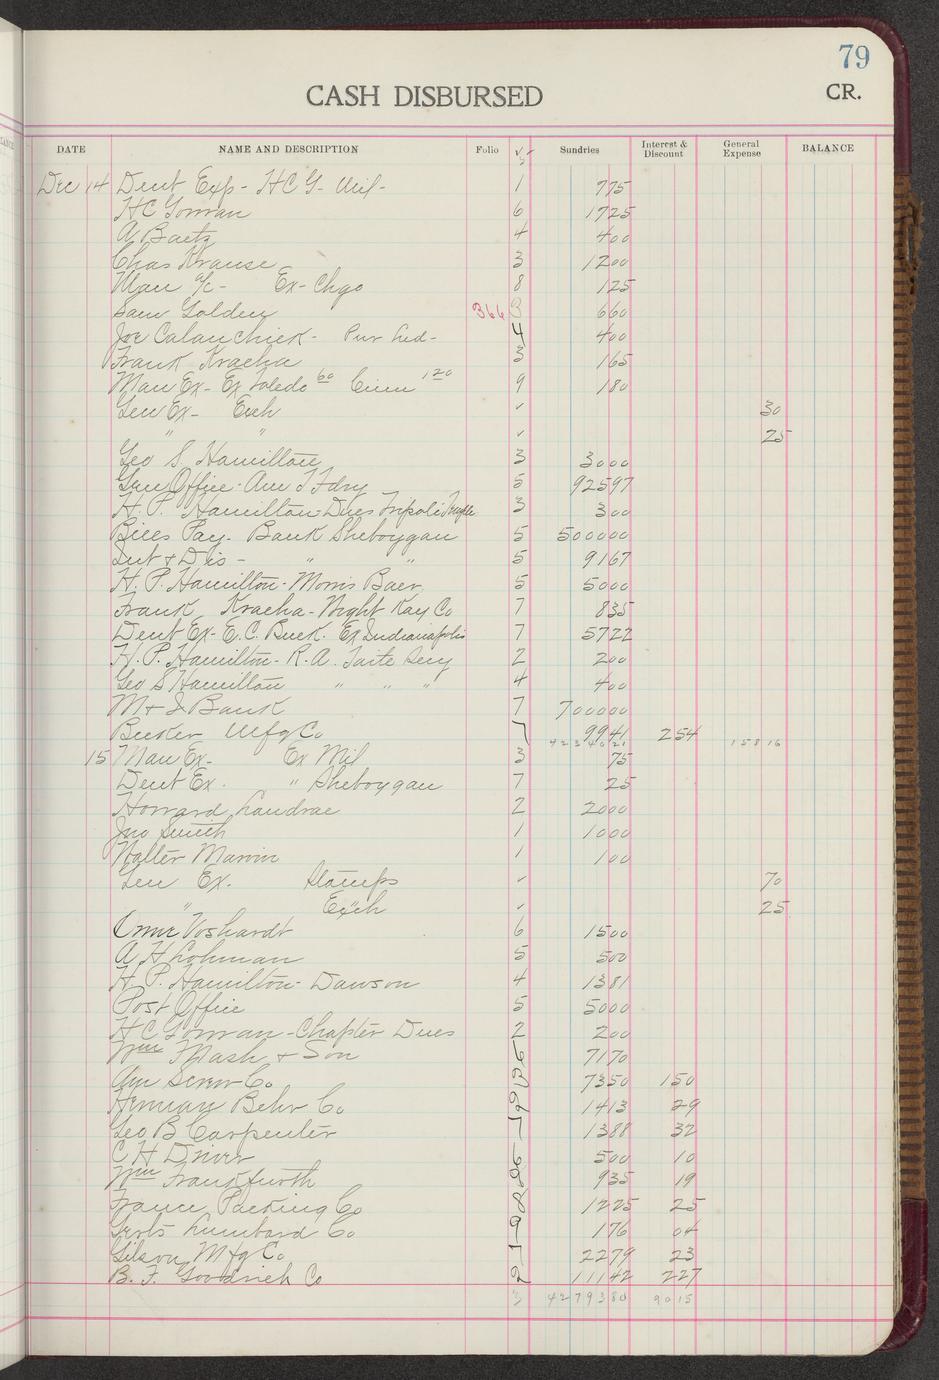 79
CASH DISBURSED
CR.
DATE NAME AND DESCRIPTION Folio √ Sundries Interest & Discount General Expense BALANCE
Dec 14 Dent Exp - H C G - Mil - 1 775
H C Gorman 6 1725
A Baetz 4 400
Chas Krause 3 1200
Man a/c - Ex - Chgo 8 125
Sam Golden 366 3 660
Joe Calanchick - Pur Led - 4 400
Frank Kracha 3 165
Man Ex - Ex Toledo 60 Cinn 120 9 180
Gen Ex - Exch ✓ 30
" " ✓ 25
Geo S Hamilton 3 3000
Gen Office - Am T Fdry 5 92597
H. P. Hamilton - Dues Tripoli Temple 3 300
Bills Pay. Bank Sheboygan 5 500000
Int & Dis - " " 5 9167
H. P. Hamilton - Morris Baer 5 5000
Frank Kracha - Night Kay Co 7 835
Dent Ex - E. C. Buck. Ex Indianapolis 7 5722
H. P. Hamilton - R. A. Taite Seny 2 200
Geo S Hamilton " " " 4 400
M & I Bank 7 700000
Becker Mfg Co 7 9941 254
4234021 15816
15 Man Ex - Ex Mil 3 75
Dent Ex. " Sheboygan 7 25
Howard Landrae 2 2000
Jno Smith 1 1000
Walter Marvin 1 100
Gen Ex. Stamps ✓ 70
" Exch ✓ 25
Omar Voshardt 6 1500
A H Lohman 5 500
H. P. Hamilton - Dawson 4 1381
Post Office 5 5000
H C Gorman - Chapter Dues 2 200
Wm F Nash & Son 6 7170
Am Screw Co 7350 150
Herman Behr Co 9 1413 29
Geo B Carpenter 7 1388 32
C H Driver 6 500 10
Wm Frankfurth 8 935 19
France Packing Co 8 1225 25
Gerts Lumbard Co 9 176 04
Gilson Mfg Co 7 2279 23
B. F. Goodrich Co 2 11142 227
3 4279380 9015